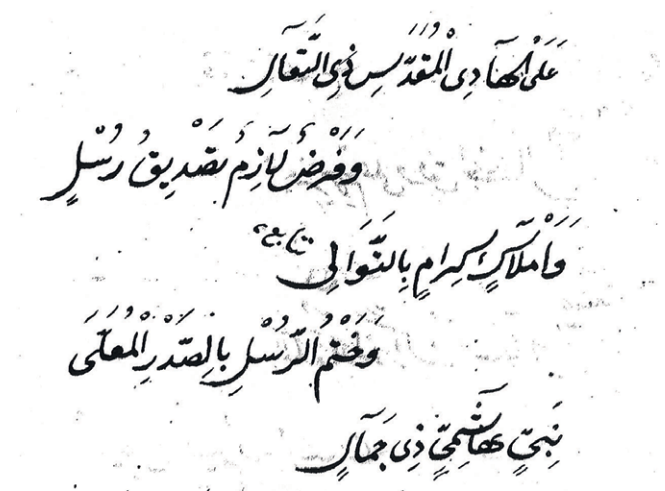 عَلَى الْهَادِى الْمُقَدَّسِ ذِى التَّعَالِ
وَفَرْضٌ لَازِمٌ تَصْدِيقُ رُسْلٍ
وَاَمْلَاكٍ كِرَامٍ بِالتَّوَالِى
وَخَتْمُ الرُّسْلِ بِالصَّدْرِ الْمُعَلَّى
نَبِىٍّ هَاشِمِىٍّ ذِى جَمَالٍ